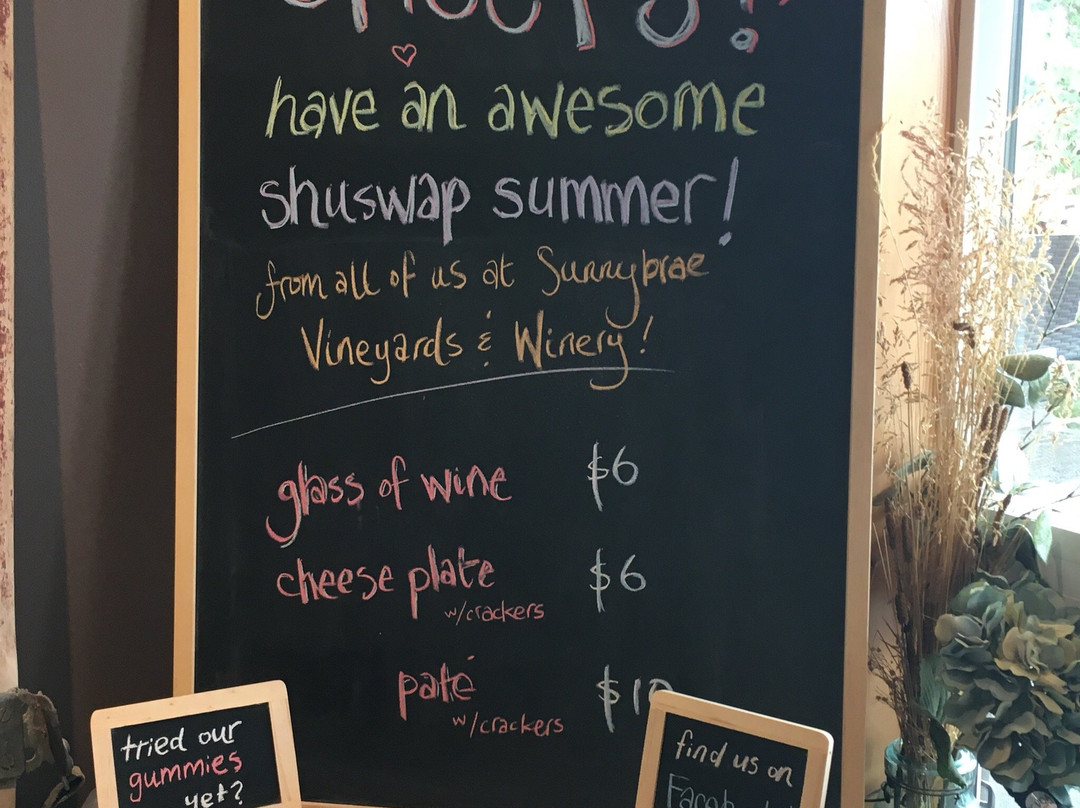 have an awesome
shuswap summer!
from all of us at Sunnybrae
Vineyards & Winery!
glass of wine $6
cheese plate $6
w/crackers
paté
w/crackers
tried our
gummies
yet?
find us on